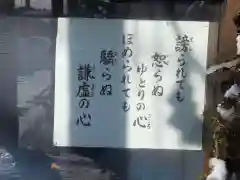 謗られても
恕らぬ
ゆとりの心
ほめられても
驕らぬ
謙虚の心